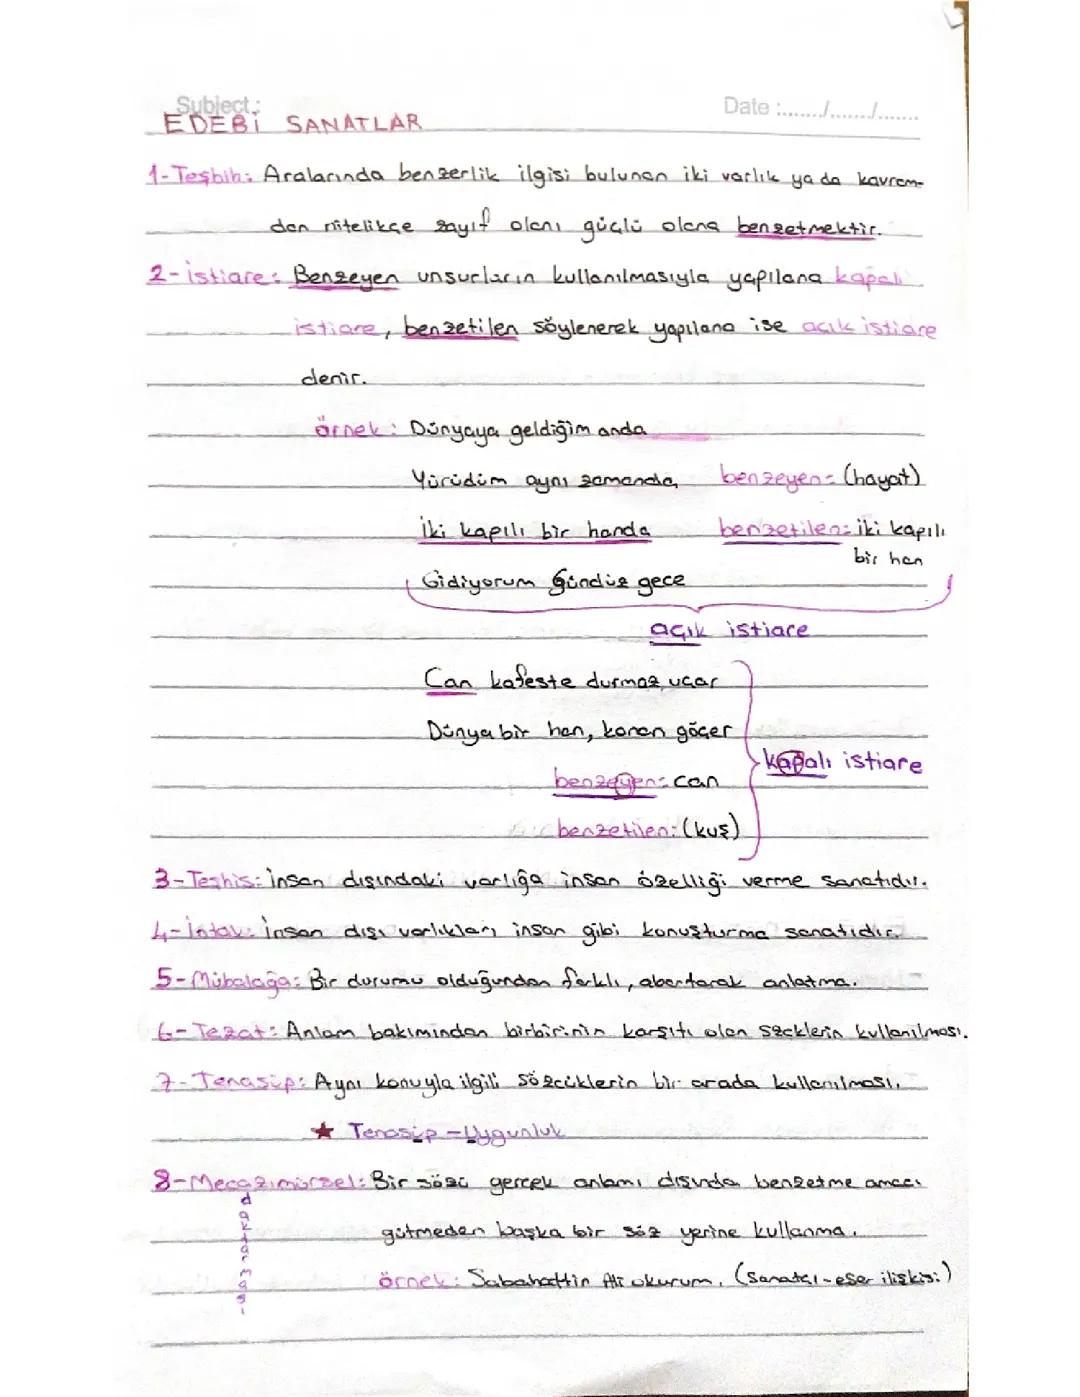 Subject:
Date :......./......./.......
EDEBİ SANATLAR
1-Teşbih: Aralarında benzerlik ilgisi bulunan iki varlık ya da kavram-
dan nitelikçe zayıf olanı güçlü olana benzetmektir.
2-istiare: Benzeyen unsurların kullanılmasıyla yapılana kapalı
istiare, benzetilen söylenerek yapılana ise açık istiare
denir.
örnek: Dünyaya geldiğim anda
Yürüdüm aynı zamanda, benzeyen= (hayat)
İki kapılı bir handa benzetilen: iki kapılı
bir han
Gidiyorum Gündüz gece
açık istiare
Can kafeste durmaz uçar
Dünya bir han, konan göçer
kapalı istiare
benzeyen: can
benzetilen: (kuş)
3-Teşhis: İnsan dışındaki varlığa insan özelliği verme sanatıdır.
4-İntak: İnsan dışı varlıkları insan gibi konuşturma sanatıdır.
5-Mübalağa: Bir durumu olduğundan farklı, abartarak anlatma.
6-Tezat: Anlam bakımından birbirinin karşıtı olan szcklerin kullanılması.
7-Tenasüp: Aynı konuyla ilgili sözcüklerin bir arada kullanılması.
★ Tenasüp-Uygunluk
8-Mecazımürsel: Bir sözü gerçek anlamı dışında benzetme amacı
gütmeden başka bir söz yerine kullanma.
örnek: Sabahattin Ali okurum. (Sanatçı-eser ilişkisi)